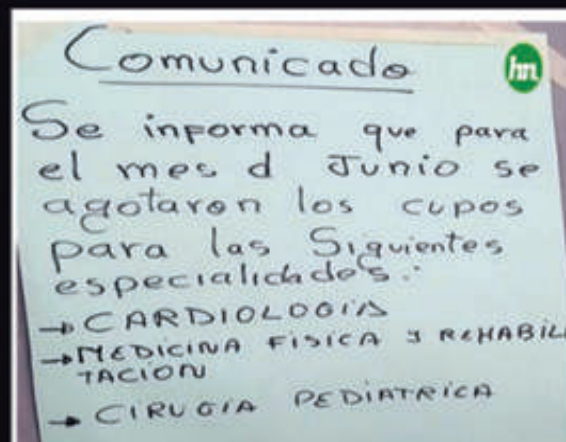 Comunicado
hn
Se informa que para
el mes d Junio se
agotaron los cupos
para las Siguientes
especialidades:
→ CARDIOLOGIA
→ MEDICINA FISICA Y REHABILI
TACION
→ CIRUGIA PEDIATRICA